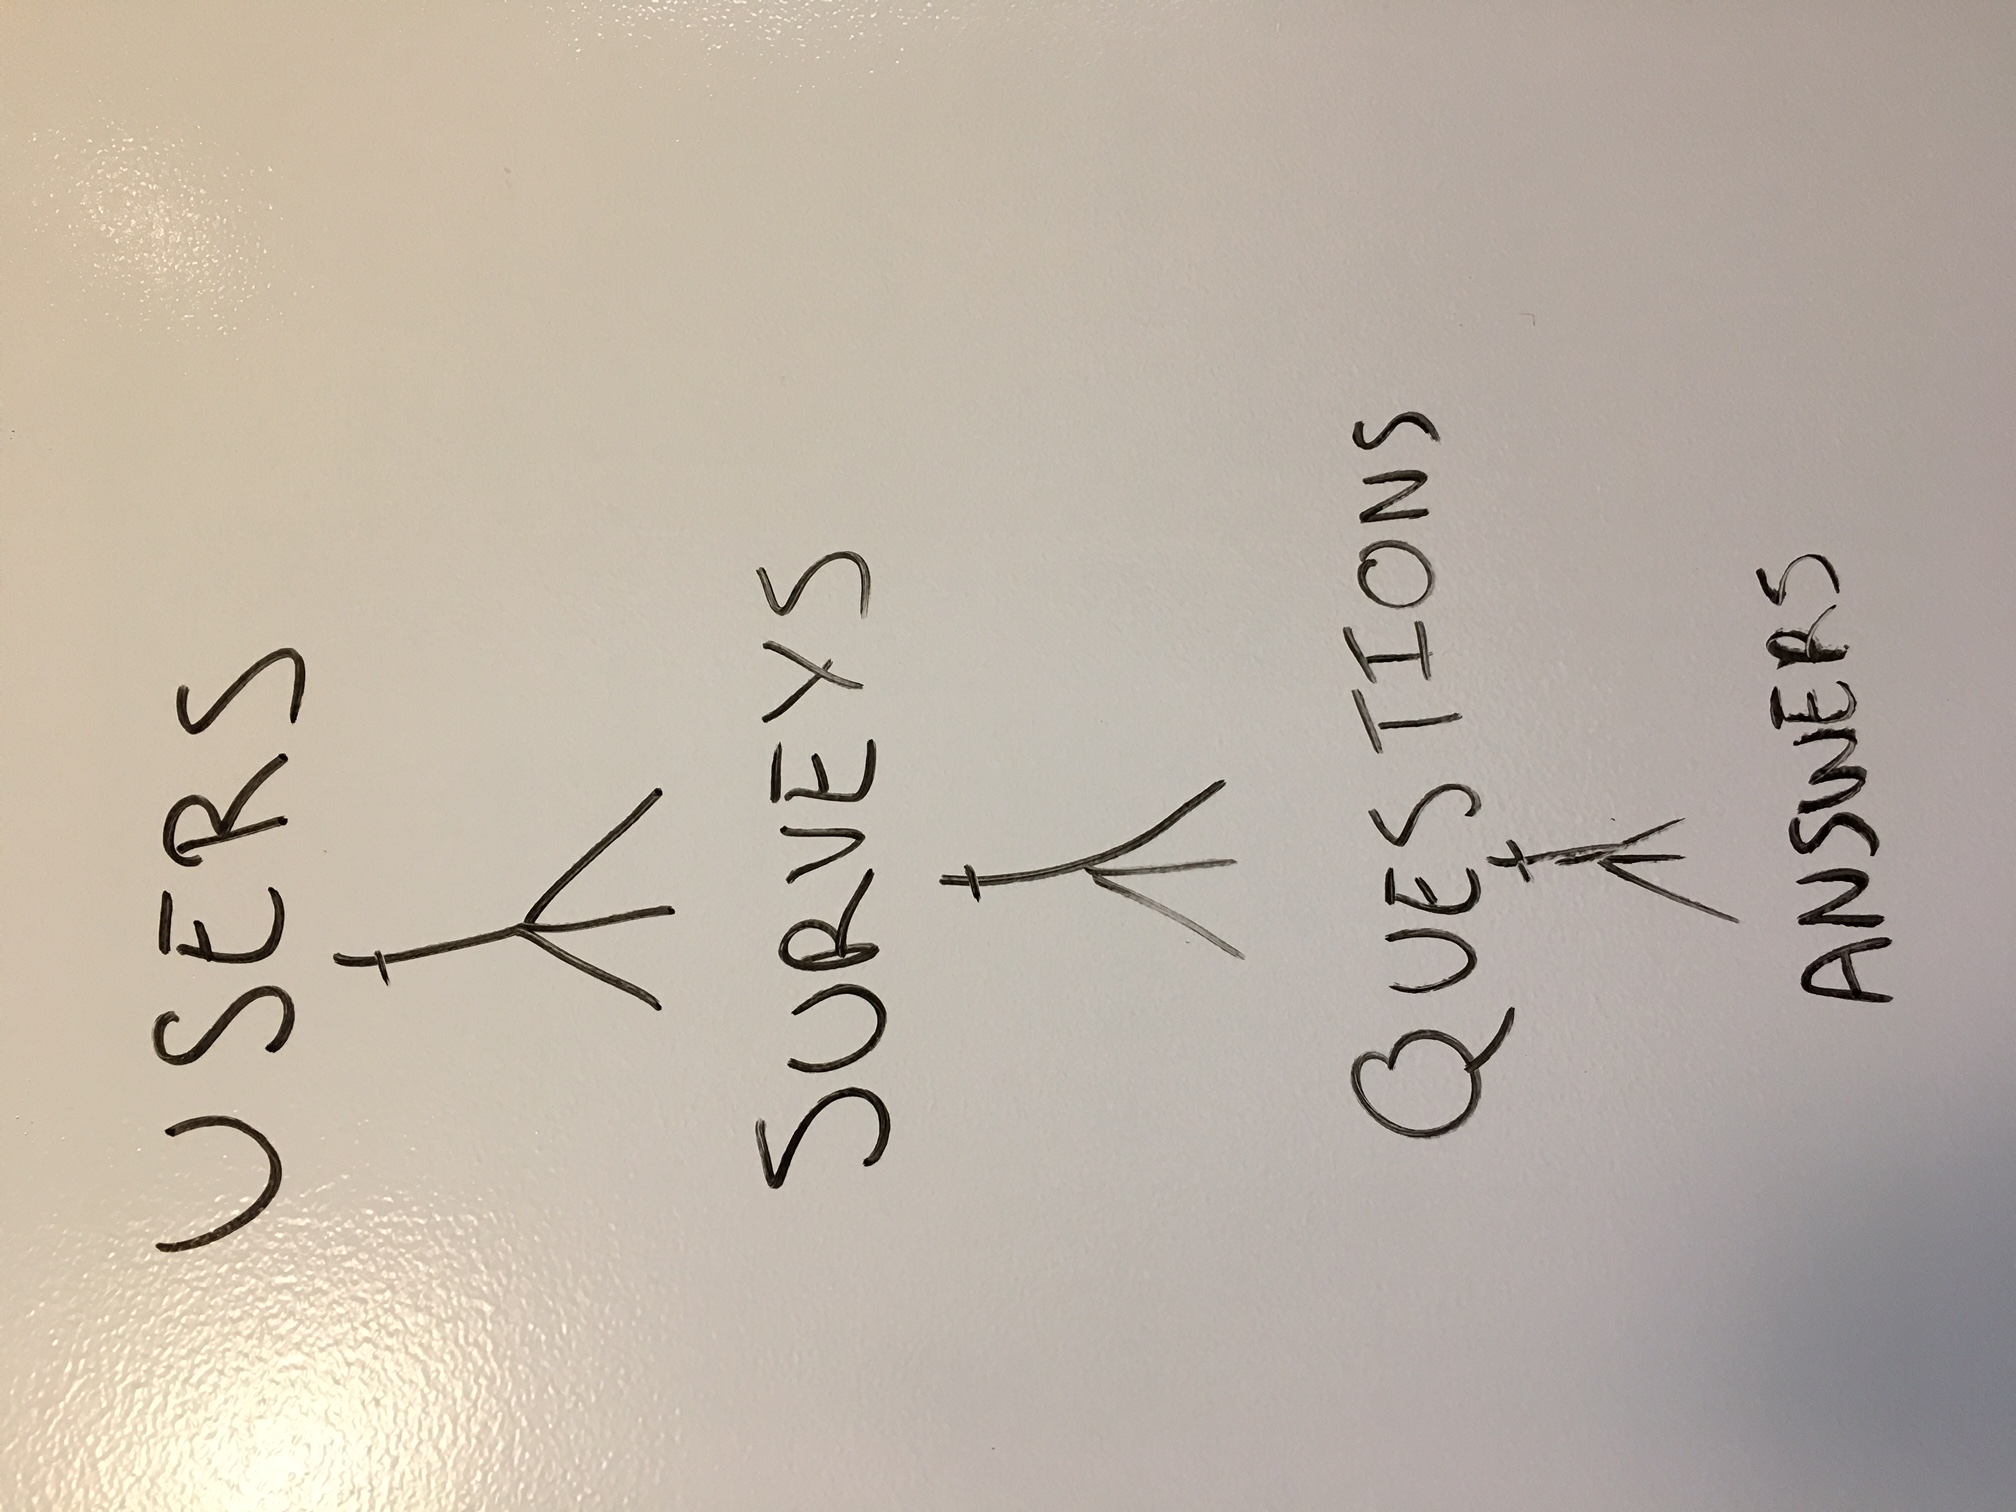 USERS
SURVEYS
QUESTIONS
ANSWERS